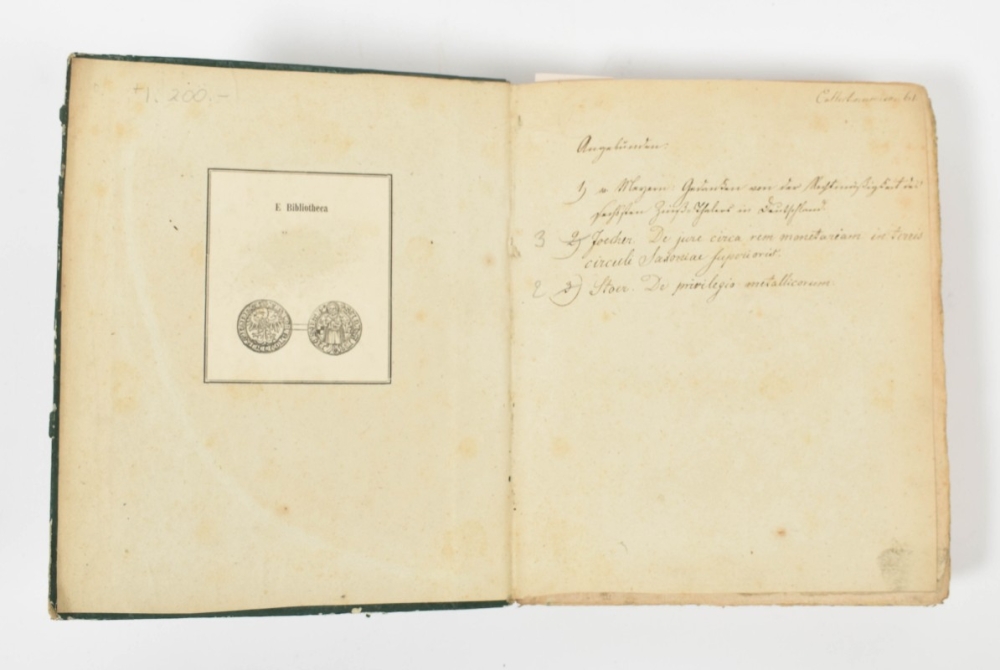 1. 200.-
E Bibliotheca
Angebunden:
1) v Meyern Gedanken von der Rechtmäßigkeit des
sechsten Zinß Thalers in Deutschland.
3 2) Joecher. De jure circa rem monetariam in terris
circuli Saxoniae superioris.
2 3) Staer. De privilegio metallicorum.